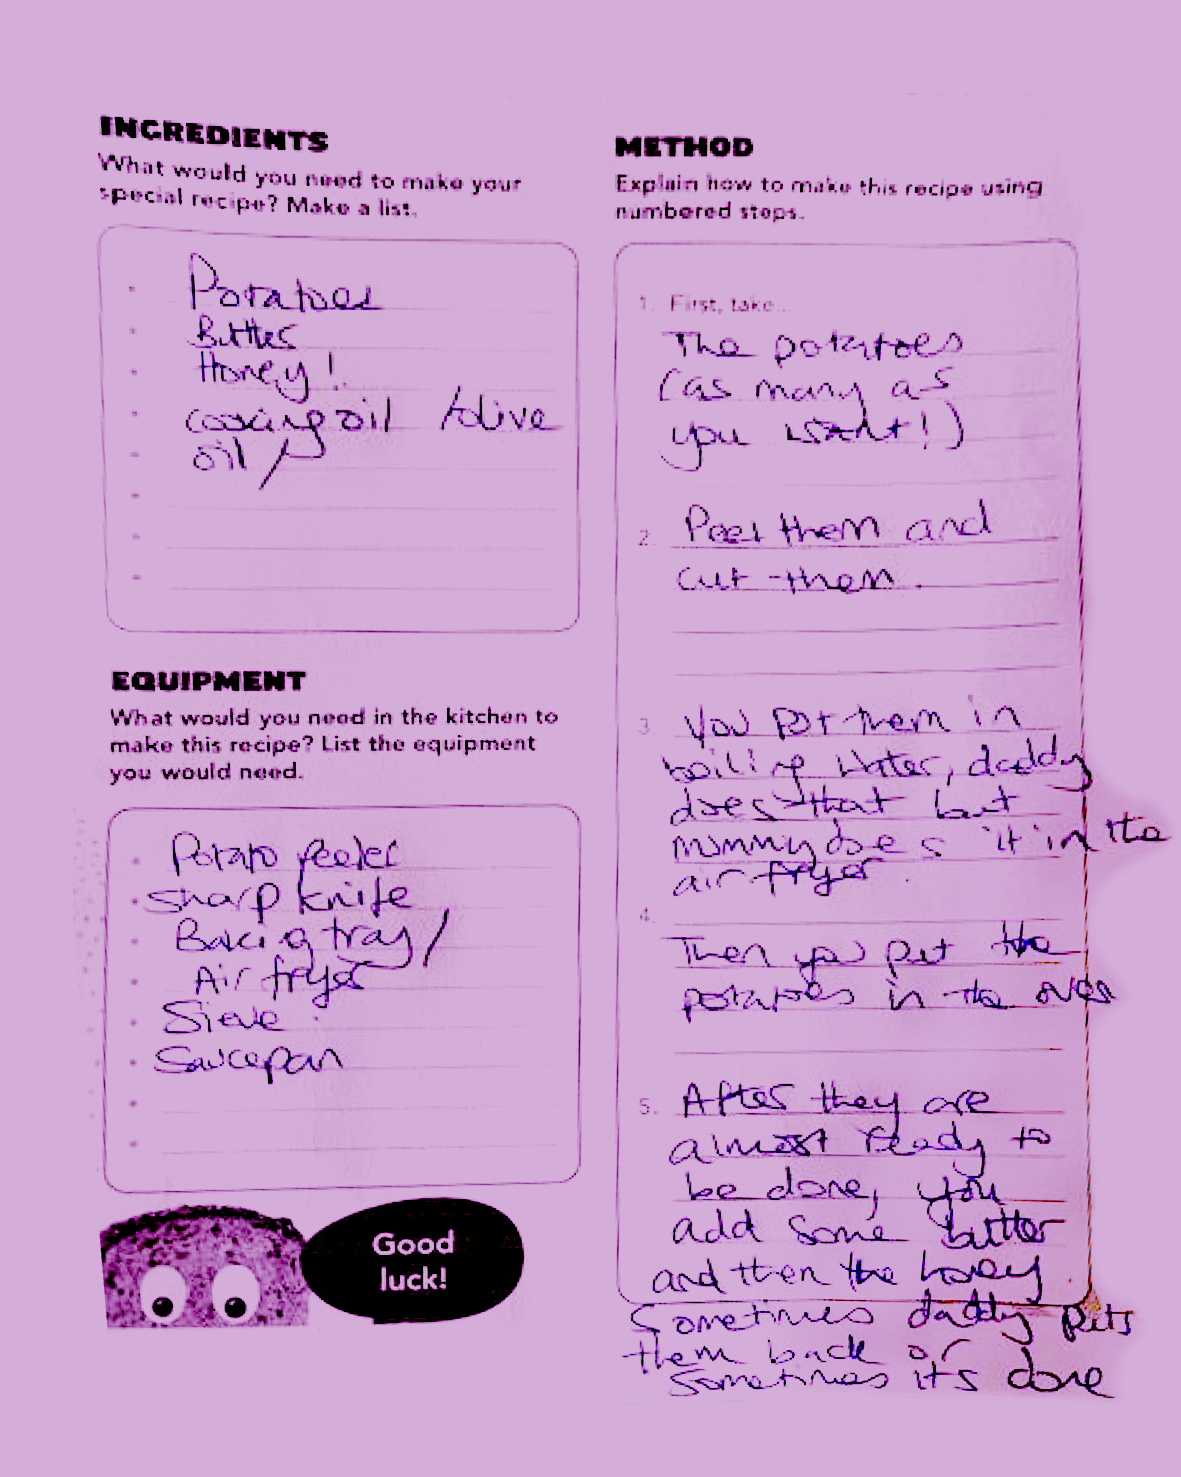 INGREDIENTS
What would you need to make your
special recipe? Make a list.
Potatoes
Butter
Honey!
cooking oil /olive
oil/
EQUIPMENT
What would you need in the kitchen to
make this recipe? List the equipment
you would need.
Potato peeler
sharp knife
Baking tray/
Air fryer
Sieve.
Saucepan
Good
luck!
METHOD
Explain how to make this recipe using
numbered steps.
1. First, take...
The potatoes
(as many as
you want!)
2. Peel them and
cut them.
3. You put them in
boiling water, daddy
does that but
mummy does it in the
air fryer.
4.
Then you put the
potatoes in the oven
5. After they are
almost ready to
be done, you
add some butter
and then the honey.
Sometimes daddy puts
them back or
sometimes its done